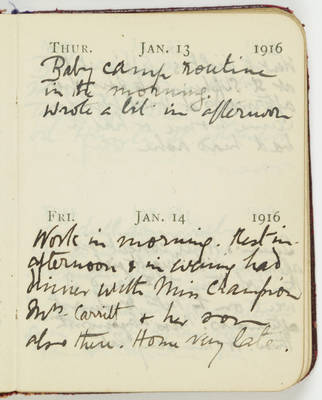 THUR. JAN. 13 1916
Baby camp routine
in the morning.
Wrote a bit in afternoon
FRI. JAN. 14 1916
Work in morning. Rest in
afternoon & in evening had
dinner with Miss Champion
Mrs Carritt & her son
also there. Home very late.